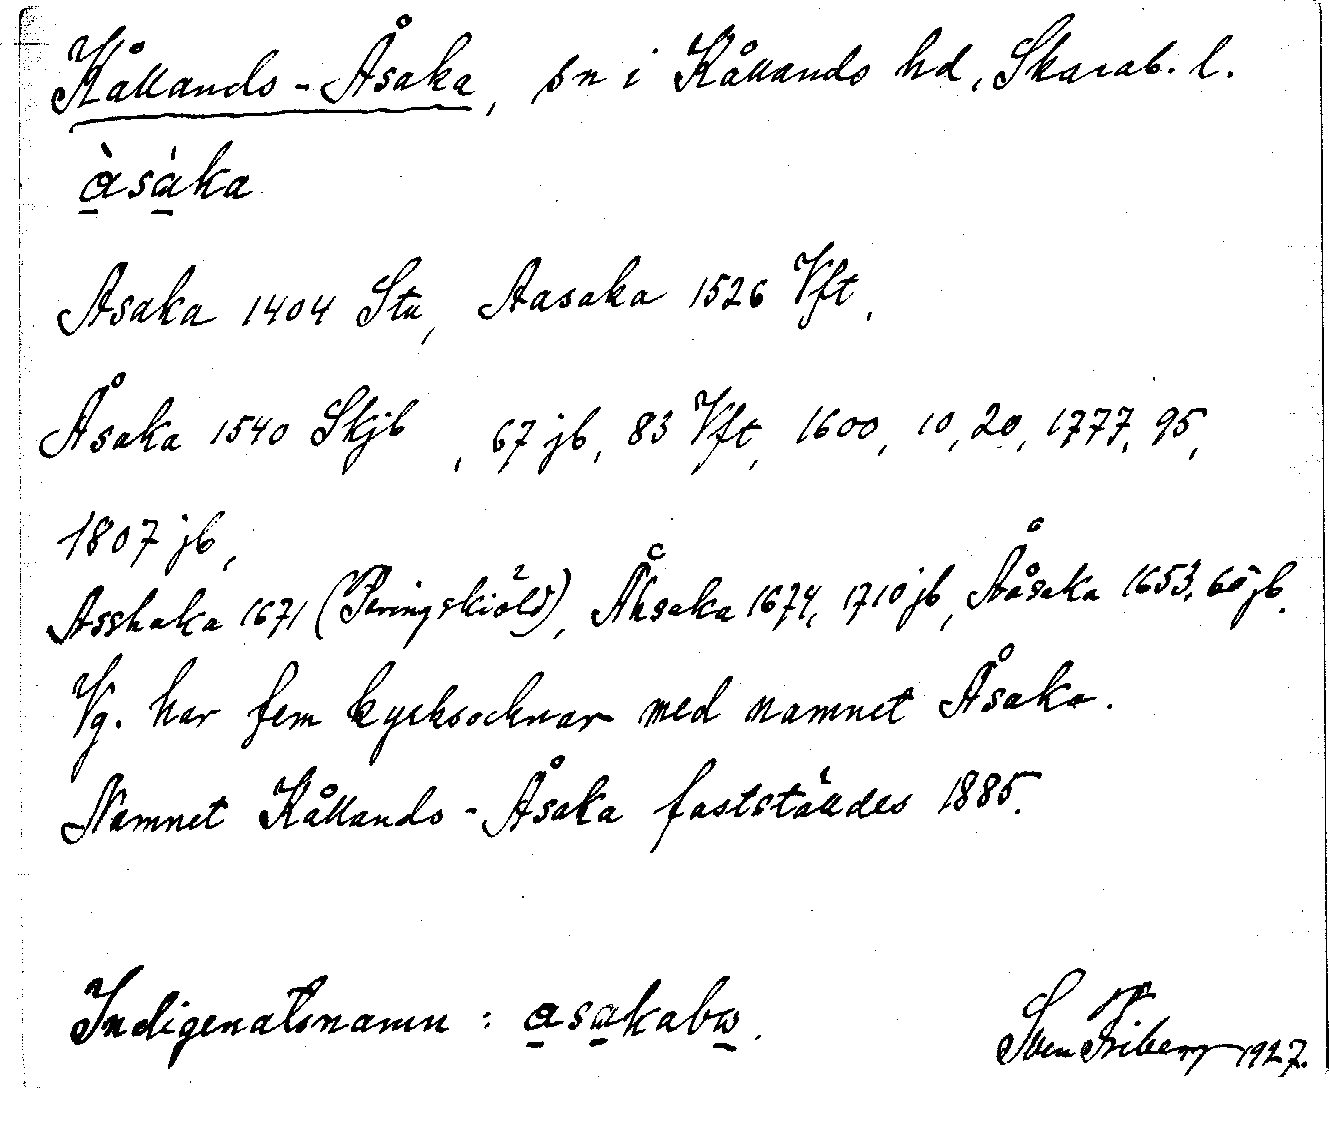 Kållands-Åsaka, sn i Kållands hd, Skarab. l.
à̱sa̱̍ka
Asaka 1404 Stu, Aasaka 1526 Vft,
Åsaka 1540 Skjb, 67 jb, 83 Vft, 1600, 10, 20, 1777, 95,
1807 jb,
Asshaka 1671 (Peringskiöld), Åhsaka 1674, 1710 jb, Aåsaka 1653, 60 jb.
Vg. har fem kyrksocknar med namnet Åsaka.
Namnet Kållands-Åsaka fastställdes 1885.
Indigenatsnamn: a̱sa̱kabω̱.
Sven Friberg 1927.